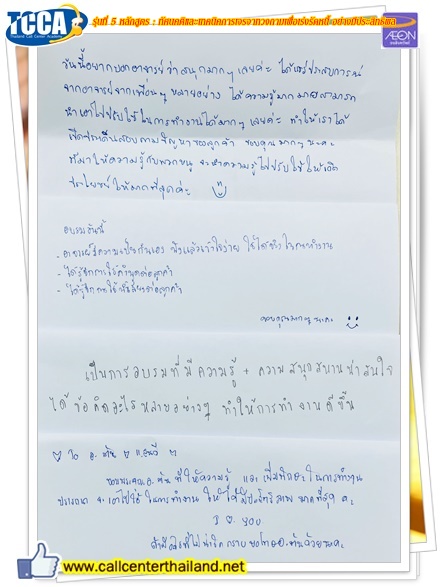 TCCA
Thailand Call Center Academy
รุ่นที่ 5 หลักสูตร : ทัศนคติและเทคนิคการเจรจาทวงถามเพื่อเร่งรัดหนี้อย่างมีประสิทธิผล
AEON
วันนี้อยากบอกอาจารย์ว่าสนุกมากๆ เลยค่ะ ได้แชร์ประสบการณ์
จากอาจารย์จากเพื่อนๆ หลายอย่าง ได้ความรู้มากมายสามารถ
นำเอาไปปรับใช้ในการทำงานได้มากๆ เลยค่ะ ทำให้เราได้
ปัญหาของลูกค้า ขอบคุณมากๆ นะคะ
ที่มาให้ความรู้กับพวกหนู จะนำความรู้ไปปรับใช้ให้เกิด
ประโยชน์ให้มากที่สุดค่ะ
อบรมวันนี้
- อาจารย์มีความเป็นกันเอง ฟังแล้วเข้าใจง่าย ใช้ได้จริงในการทำงาน
- ได้รู้จักการใช้คำพูดต่อลูกค้า
- ได้รู้จักการใช้น้ำเสียงต่อลูกค้า
ขอบคุณมากๆ นะคะ
เป็นการอบรมที่มีความรู้ + ความสนุกสนานน่าสนใจ
ได้ข้อคิดอะไรหลายอย่างๆ ทำให้การทำงานดีขึ้น
To อ.
ขอบพระคุณ อ. ที่ให้ความรู้ และเพิ่มทักษะในการทำงาน
จะเอาไปใช้ในการทำงาน ให้มีประสิทธิภาพ มากที่สุด ค่ะ
you
ด้วยนะคะ
www.callcenterthailand.net